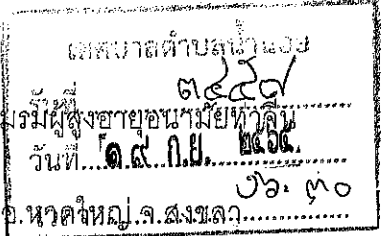 เทศบาลตำบลน้ำน้อย
๓๔๕๗
มรมผู้สูงอายุอนามัยท่าจีน
วันที่....๑๙ ก.ย. ๒๕๖๕
๓๐
อ.หาดใหญ่.จ.สงขลา